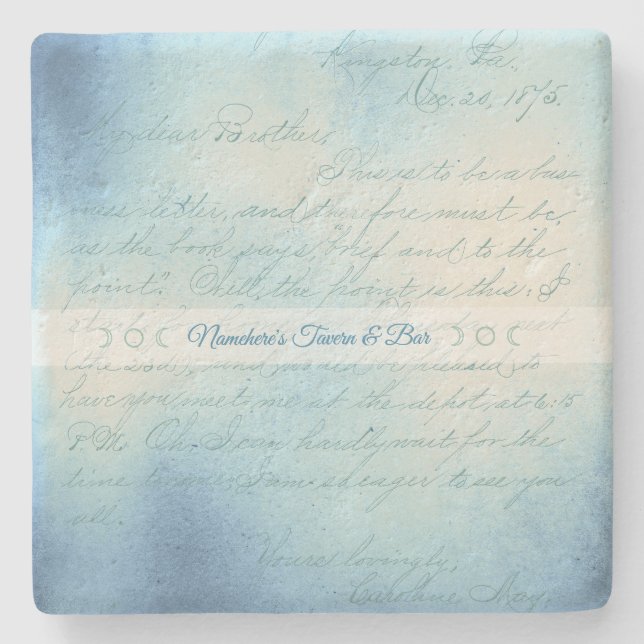 Kingston, Pa.,
Dec. 20, 1875.
My dear Brother,
This is to be a bus-
iness letter, and therefore must be,
as the book says, "brief and to the
point." Well, the point is this: I
☽ ○ ☾ Namehere's Tavern & Bar ☽ ○ ☾
(the 23d), and would be pleased to
have you meet me at the depot, at 6:15
P.M. Oh, I can hardly wait for the
time to come, I am so eager to see you
all.
Yours lovingly,
Caroline May.